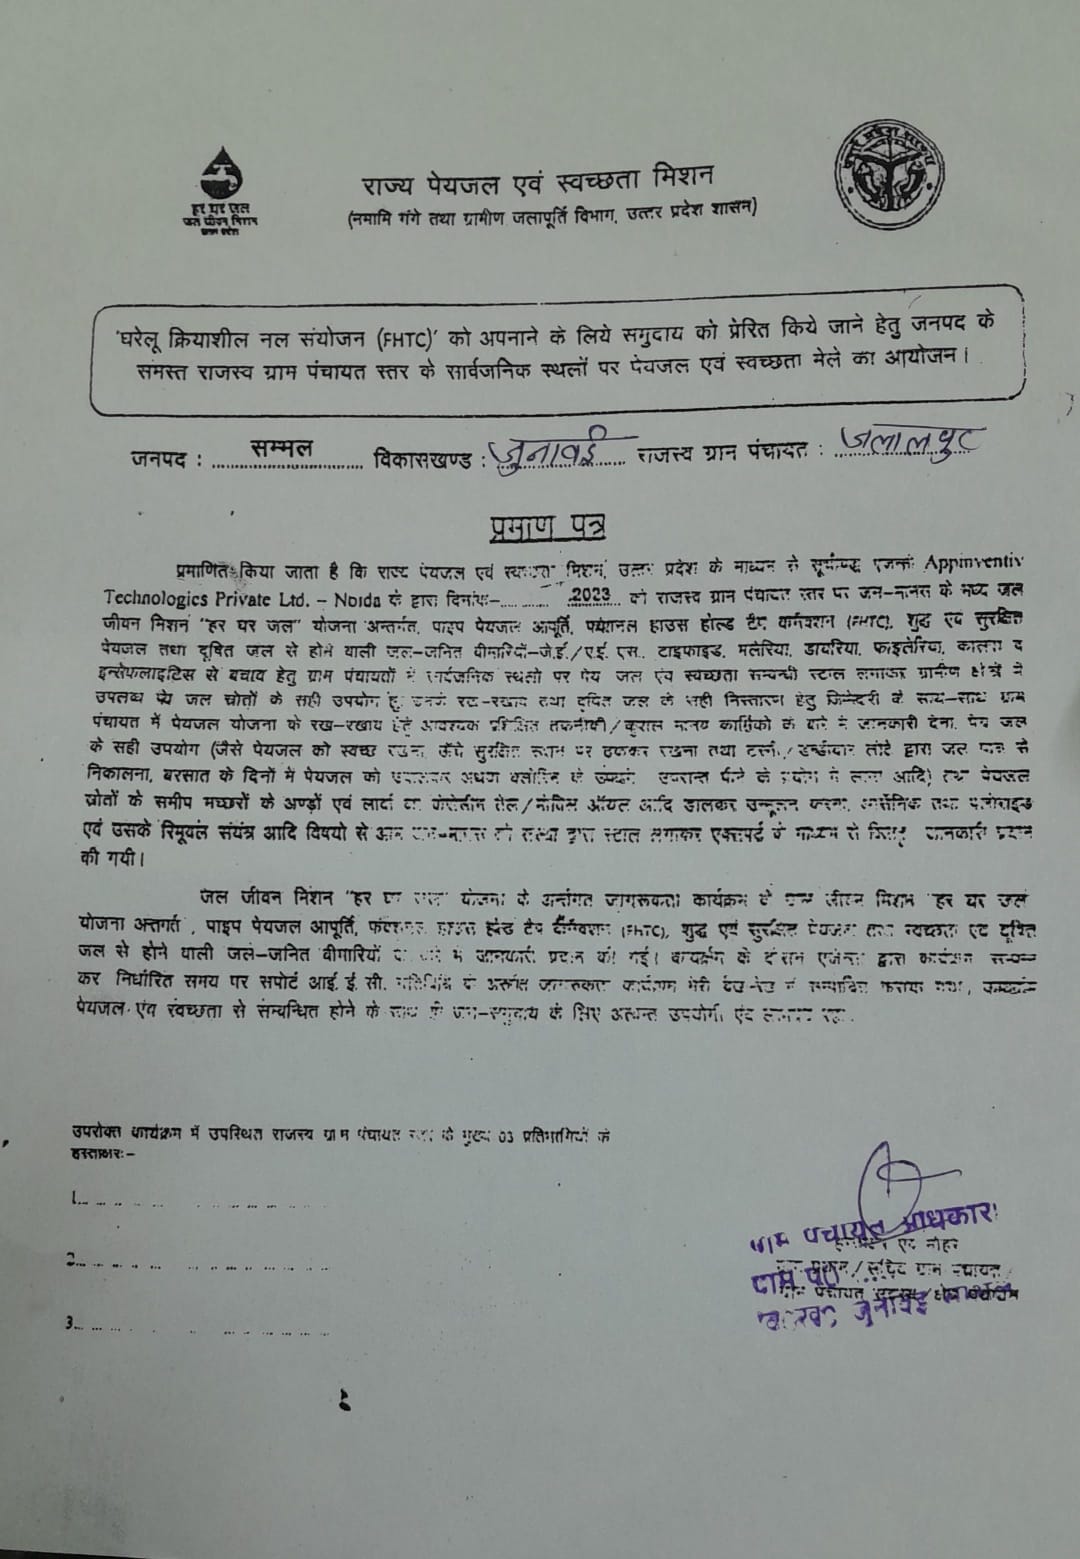 हर घर जल
जल जीवन मिशन
उत्तर प्रदेश
राज्य पेयजल एवं स्वच्छता मिशन
(नमामि गंगे तथा ग्रामीण जलापूर्ति विभाग, उत्तर प्रदेश शासन)
'घरेलू क्रियाशील नल संयोजन (FHTC)' को अपनाने के लिये समुदाय को प्रेरित किये जाने हेतु जनपद के
समस्त राजस्व ग्राम पंचायत स्तर के सार्वजनिक स्थलों पर पेयजल एवं स्वच्छता मेले का आयोजन।
जनपद : सम्मल विकासखण्ड : जुनावई राजस्व ग्रान पंचायत : जलालपुर
प्रमाण पत्र
प्रमाणित किया जाता है कि राज्य पेयजल एवं स्वच्छता मिशन, उत्तर प्रदेश के माध्यम से सूचीबद्ध एजेन्सी Appinventiv
Technologies Private Ltd. – Noida के द्वारा दिनांक- 2023 को राजस्व ग्राम पंचायत स्तर पर जन-मानस के मध्य जल
जीवन मिशन "हर घर जल" योजना अन्तर्गत, पाइप पेयजल आपूर्ति, फंक्शनल हाउस होल्ड टैप कनेक्शन (FHTC), शुद्ध एवं सुरक्षित
पेयजल तथा दूषित जल से होने वाली जल-जनित बीमारियों-जे.ई./ए.ई. एस., टाइफाइड, मलेरिया, डायरिया, फाइलेरिया, कालरा व
इन्सेफलाइटिस से बचाव हेतु ग्राम पंचायतों में सार्वजनिक स्थलों पर पेय जल एवं स्वच्छता सम्बन्धी स्टाल लगाकर ग्रामीण क्षेत्रों में
उपलब्ध पेय जल स्रोतों के सही उपयोग रख-रखाव तथा दूषित जल के सही निस्तारण हेतु जिम्मेदारी के साथ-साथ ग्राम
पंचायत में पेयजल योजना के रख-रखाव हेतु आवश्यक प्रशिक्षित तकनीकी/कुशल मानव कार्मिको के बारे में जानकारी देना, पेय जल
के सही उपयोग (जैसे पेयजल को स्वच्छ रखना, ऊँचे सुरक्षित स्थान पर ढककर रखना तथा टल्ली/डन्डीदार लोटे द्वारा जल पात्र से
निकालना, बरसात के दिनों में पेयजल को उबालकर अथवा क्लोरिन के उपरान्त पीने के प्रयोग में लाना आदि) तथा पेयजल
स्रोतों के समीप मच्छरों के अण्डों एवं लार्वा का केरोसीन तेल/मोबिल ऑयल आदि डालकर उन्मूलन करना, आर्सेनिक तथा फ्लोराइड
एवं उसके रिमूवल संयंत्र आदि विषयो से आम जन-मानस को संस्था द्वारा स्टाल लगाकर एक्सपर्ट के माध्यम से जानकारी प्रदान
की गयी।
जल जीवन मिशन "हर घर जल" योजना के अर्न्तगत जागरूकता कार्यक्रम में जल जीवन मिशन हर घर जल
योजना अन्तगर्त , पाइप पेयजल आपूर्ति, फंक्शनल हाउस होल्ड टैप कनेक्शन (FHTC), शुद्ध एवं सुरक्षित पेयजल तथा स्वच्छता एवं दूषित
जल से होने वाली जल-जनित बीमारियों के बारे में जानकारी प्रदान की गई। कार्यक्रम के दौरान एजेन्सी द्वारा कार्यक्रम सम्पन्न
कर निर्धारित समय पर सपोर्ट आई. ई. सी. गतिविधि के अर्न्तगत जागरूकता कार्यक्रम मेरी देख-रेख में सम्पादित कराया गया,
पेयजल एंव स्वच्छता से सम्बन्धित होने के साथ ही जन-समुदाय के लिए अत्यन्त उपयोगी एवं लाभप्रद रहा.
उपरोक्त कार्यक्रम में उपस्थित राजस्व ग्राम पंचायत स्तर के मुख्य 03 प्रतिभागियों के
हस्ताक्षरः-
1.
2.
3.
ग्राम पंचायत अधिकारी
हस्ताक्षर एवं मोहर
/सचिव ग्राम पंचायत/
जुनावई